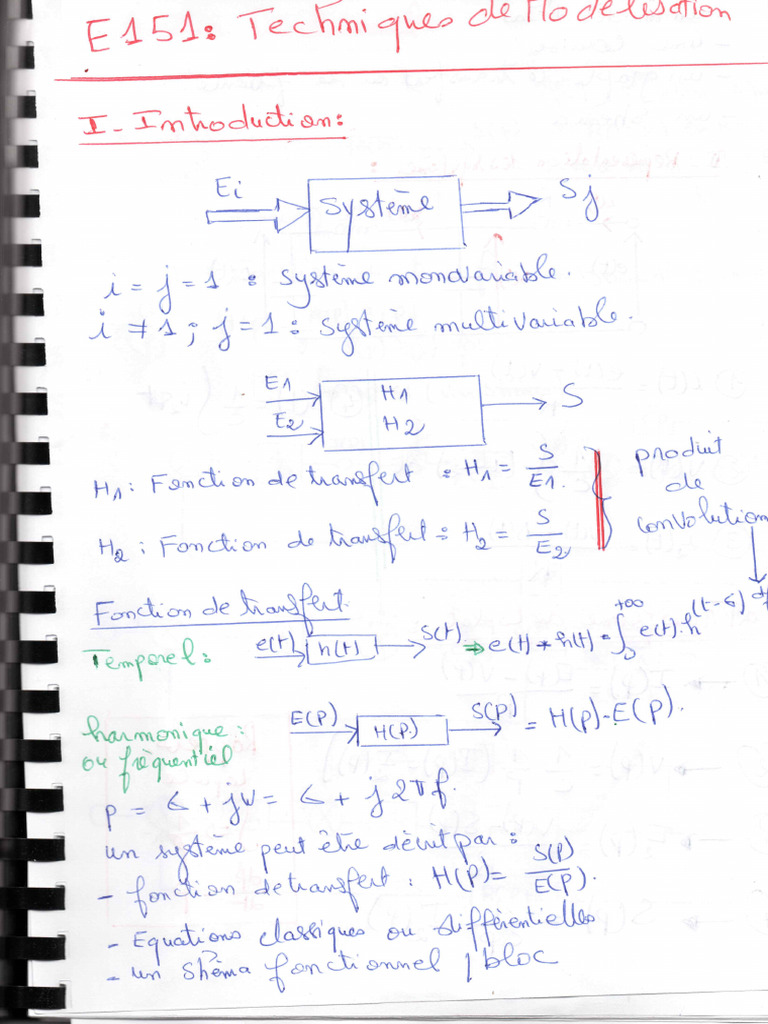 E151: Techniques de Modélisation
I- Introduction:
Ei
Système
Sj
i = j = 1 : système monovariable.
i ≠ 1 ; j = 1 : système multivariable.
E1
E2
H1
H2
S
H1 : Fonction de transfert : H1 = S/E1.
H2 : Fonction de transfert : H2 = S/E2
produit
de
convolution
Fonction de transfert.
Temporel :
e(t) h(t) S(t) ⇒ e(t) * h(t) = ∫0+∞ e(t).h(t-6)
harmonique :
ou fréquentiel
E(P) H(P) S(P) = H(P)-E(P).
p = 6 + jw = 6 + j2πf.
un système peut être décrit par :
- fonction de transfert : H(P) = S(P)/E(P).
- Equations classiques ou différentielles
- un Shéma fonctionnel / bloc